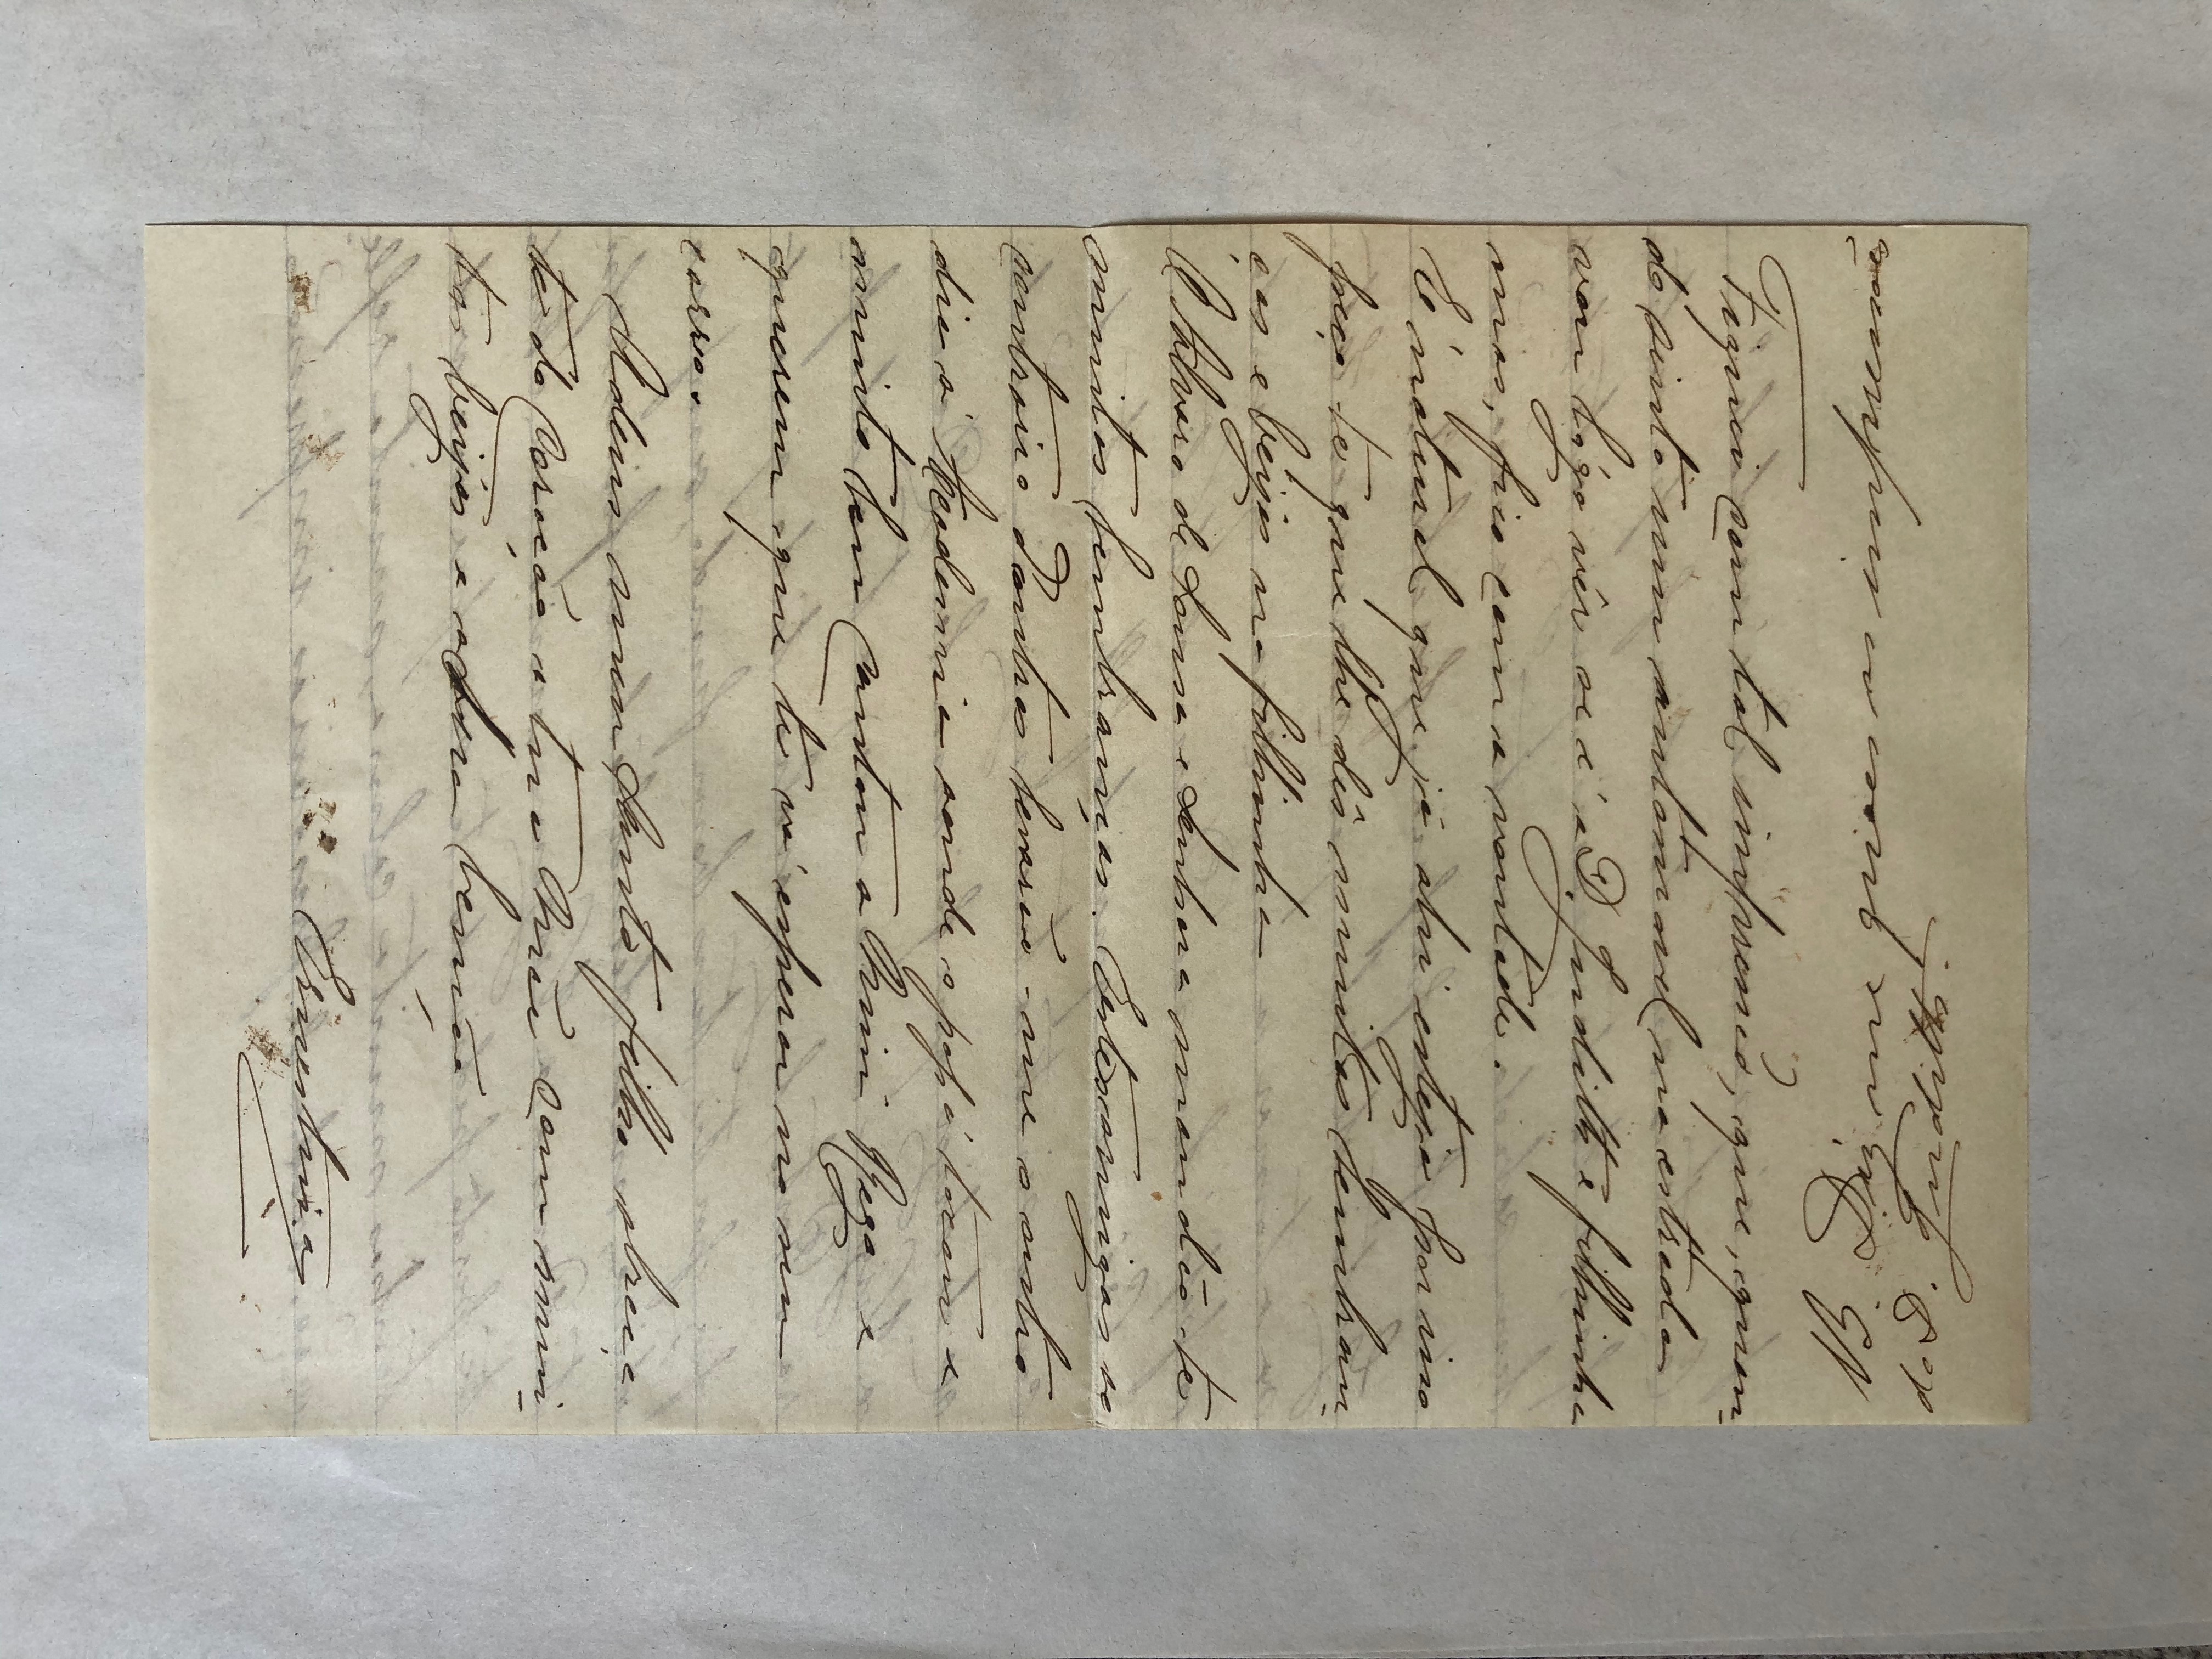 NB. Diz-me quaes as impressões
da D. Judith.
Fiquei com tal impressão, que, quan-
do sinto um automovel na estrada
vou lógo vêr se é a D. Judith e filhinha
mas, fico com a vontade.
É natural que já ahi esteja por isso
peço-te que lhe dês muitas lembran-
ças e beijos na filhinha
O Alvaro de Sousa e Senhora mandão-te
muitas lembranças. Estes amigos ao
contrario d'outros levarão-me o outro
dia á Academia aonde o papá tocou e
muito bem cantou a Mimi Rego e
querem que te vá esperar no seu
carro.
Adeus meu Santo filho abraça
te do Coração a tua Mãe com mui-
tos beijos e a sua benção
Ernestina